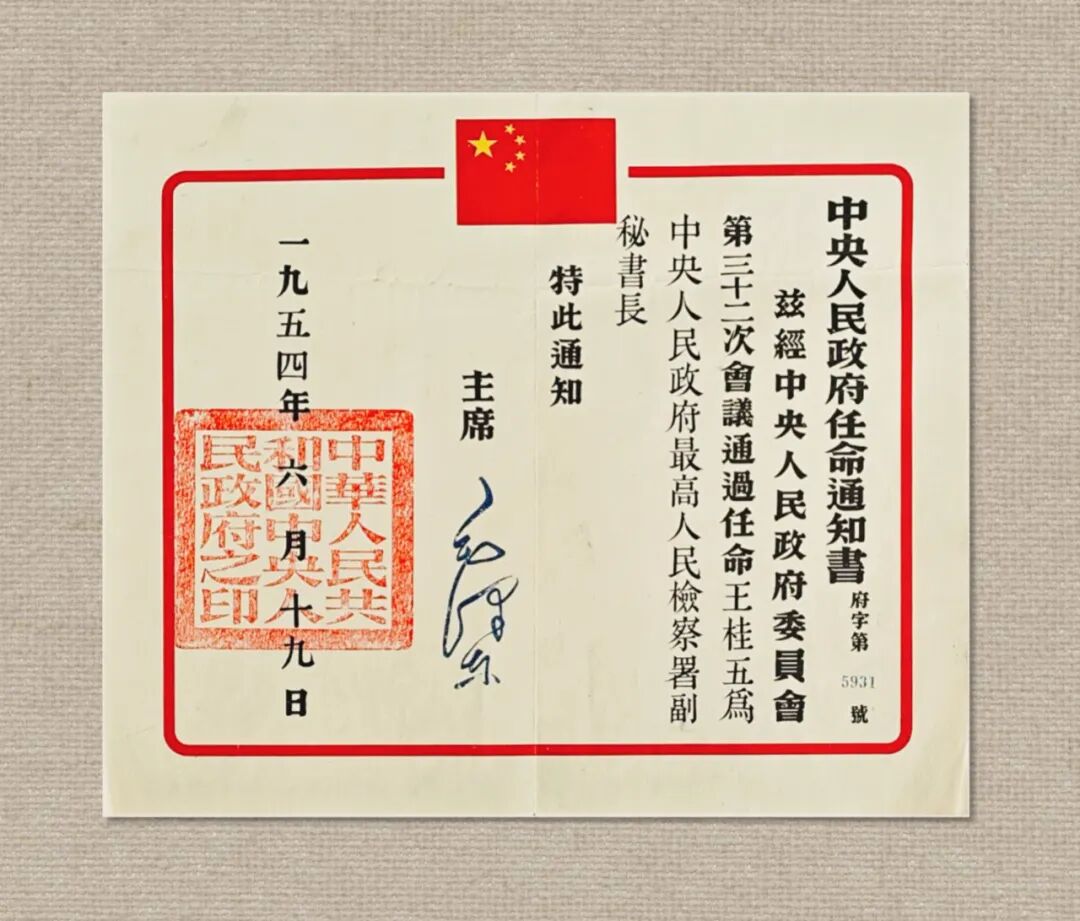 中央人民政府任命通知書
府字第 5931 號
兹經中央人民政府委員會
第三十二次會議通過任命王桂五爲
中央人民政府最高人民檢察署副
秘書長
特此通知
主席 毛澤東
一九五四年六月十九日
中華人民共
和國中央人
民政府之印